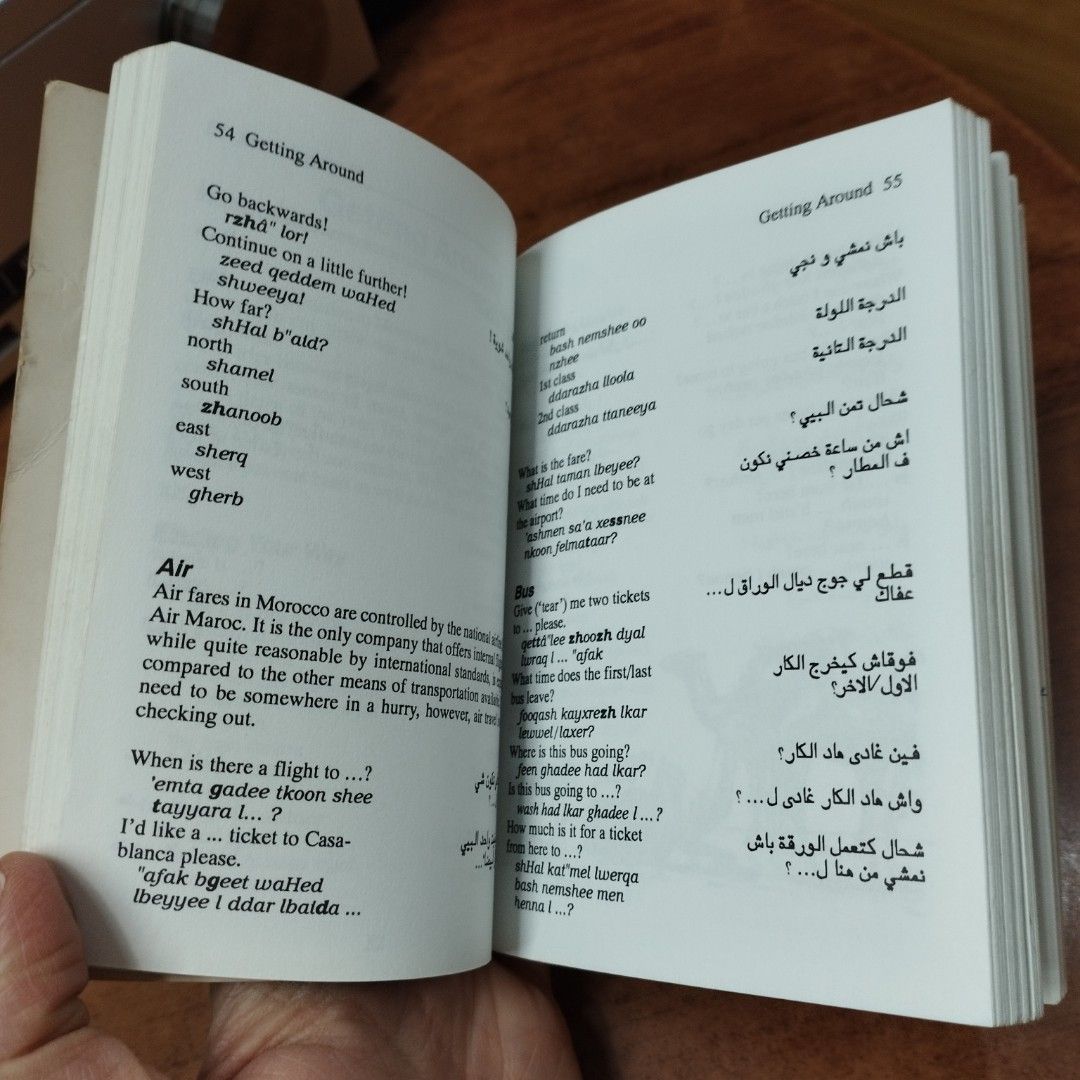 54 Getting Around
Go backwards!
rzhâ" lor!
Continue on a little further!
zeed qeddem waHed
shweeya!
How far?
shHal b"ald?
north
shamel
south
zhanoob
east
sherq
west
gherb
Air
Air fares in Morocco are controlled by the national
Air Maroc. It is the only company that offers internal
while quite reasonable by international standards, is
compared to the other means of transportation
need to be somewhere in a hurry, however, air travel
checking out.
When is there a flight to ...?
'emta gadee tkoon shee
tayyara l... ?
I'd like a ... ticket to Casa-
blanca please.
"afak bgeet waHed
lbeyyee l ddar lbaida ...
Getting Around 55
return
bash nemshee oo
nzhee
باش نمشي و نجي
1st class
ddarazha lloola
الدرجة اللولة
2nd class
ddarazha ttaneeya
الدرجة التانية
What is the fare?
shHal taman lbeyee?
شحال تمن البيي؟
What time do I need to be at
the airport?
'ashmen sa'a xessnee
nkoon felmataar?
اش من ساعة خصني نكون
ف المطار ؟
Bus
Give ('tear') me two tickets
to ... please.
gettâ"lee zhoozh dyal
lwraq l ... "afak
قطع لي جوج ديال الوراق ل...
عفاك
What time does the first/last
bus leave?
fooqash kayxrezh lkar
lewwel/laxer?
فوقاش كيخرج الكار
الاول/الاخر؟
Where is this bus going?
feen ghadee had lkar?
فين غادى هاد الكار؟
Is this bus going to ...?
wash had lkar ghadee l ...?
واش هاد الكار غادى ل... ؟
How much is it for a ticket
from here to ...?
shHal kat"mel lwerqa
bash nemshee men
henna l ...?
شحال كتعمل الورقة باش
نمشي من هنا ل... ؟